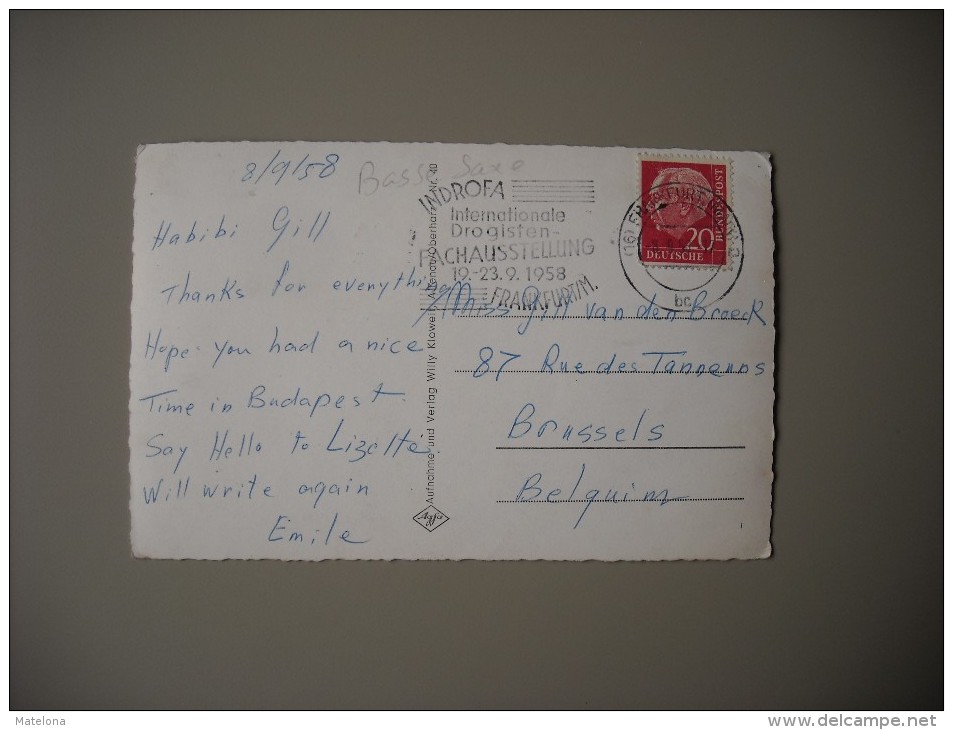 8/9/58
Basse Saxe
Habibi Gill
Thanks for everything
Hope you had a nice
Time in Budapest.
Say Hello to Lizette.
Will write again
Emile
Aufnahme und Verlag Willy Klower, Altenau/Oberharz Nr. 40
Agfa
INDROFA
Internationale
Drogisten-
FACHAUSSTELLUNG
19.-23.9.1958
FRANKFURT/M.
(16) FRANKFURT
bc
20
DEUTSCHE
BUNDESPOST
Miss Gill van den Broeck
87 Rue des Tanneurs
Brussels
Belguim
Matelona
www.delcampe.net